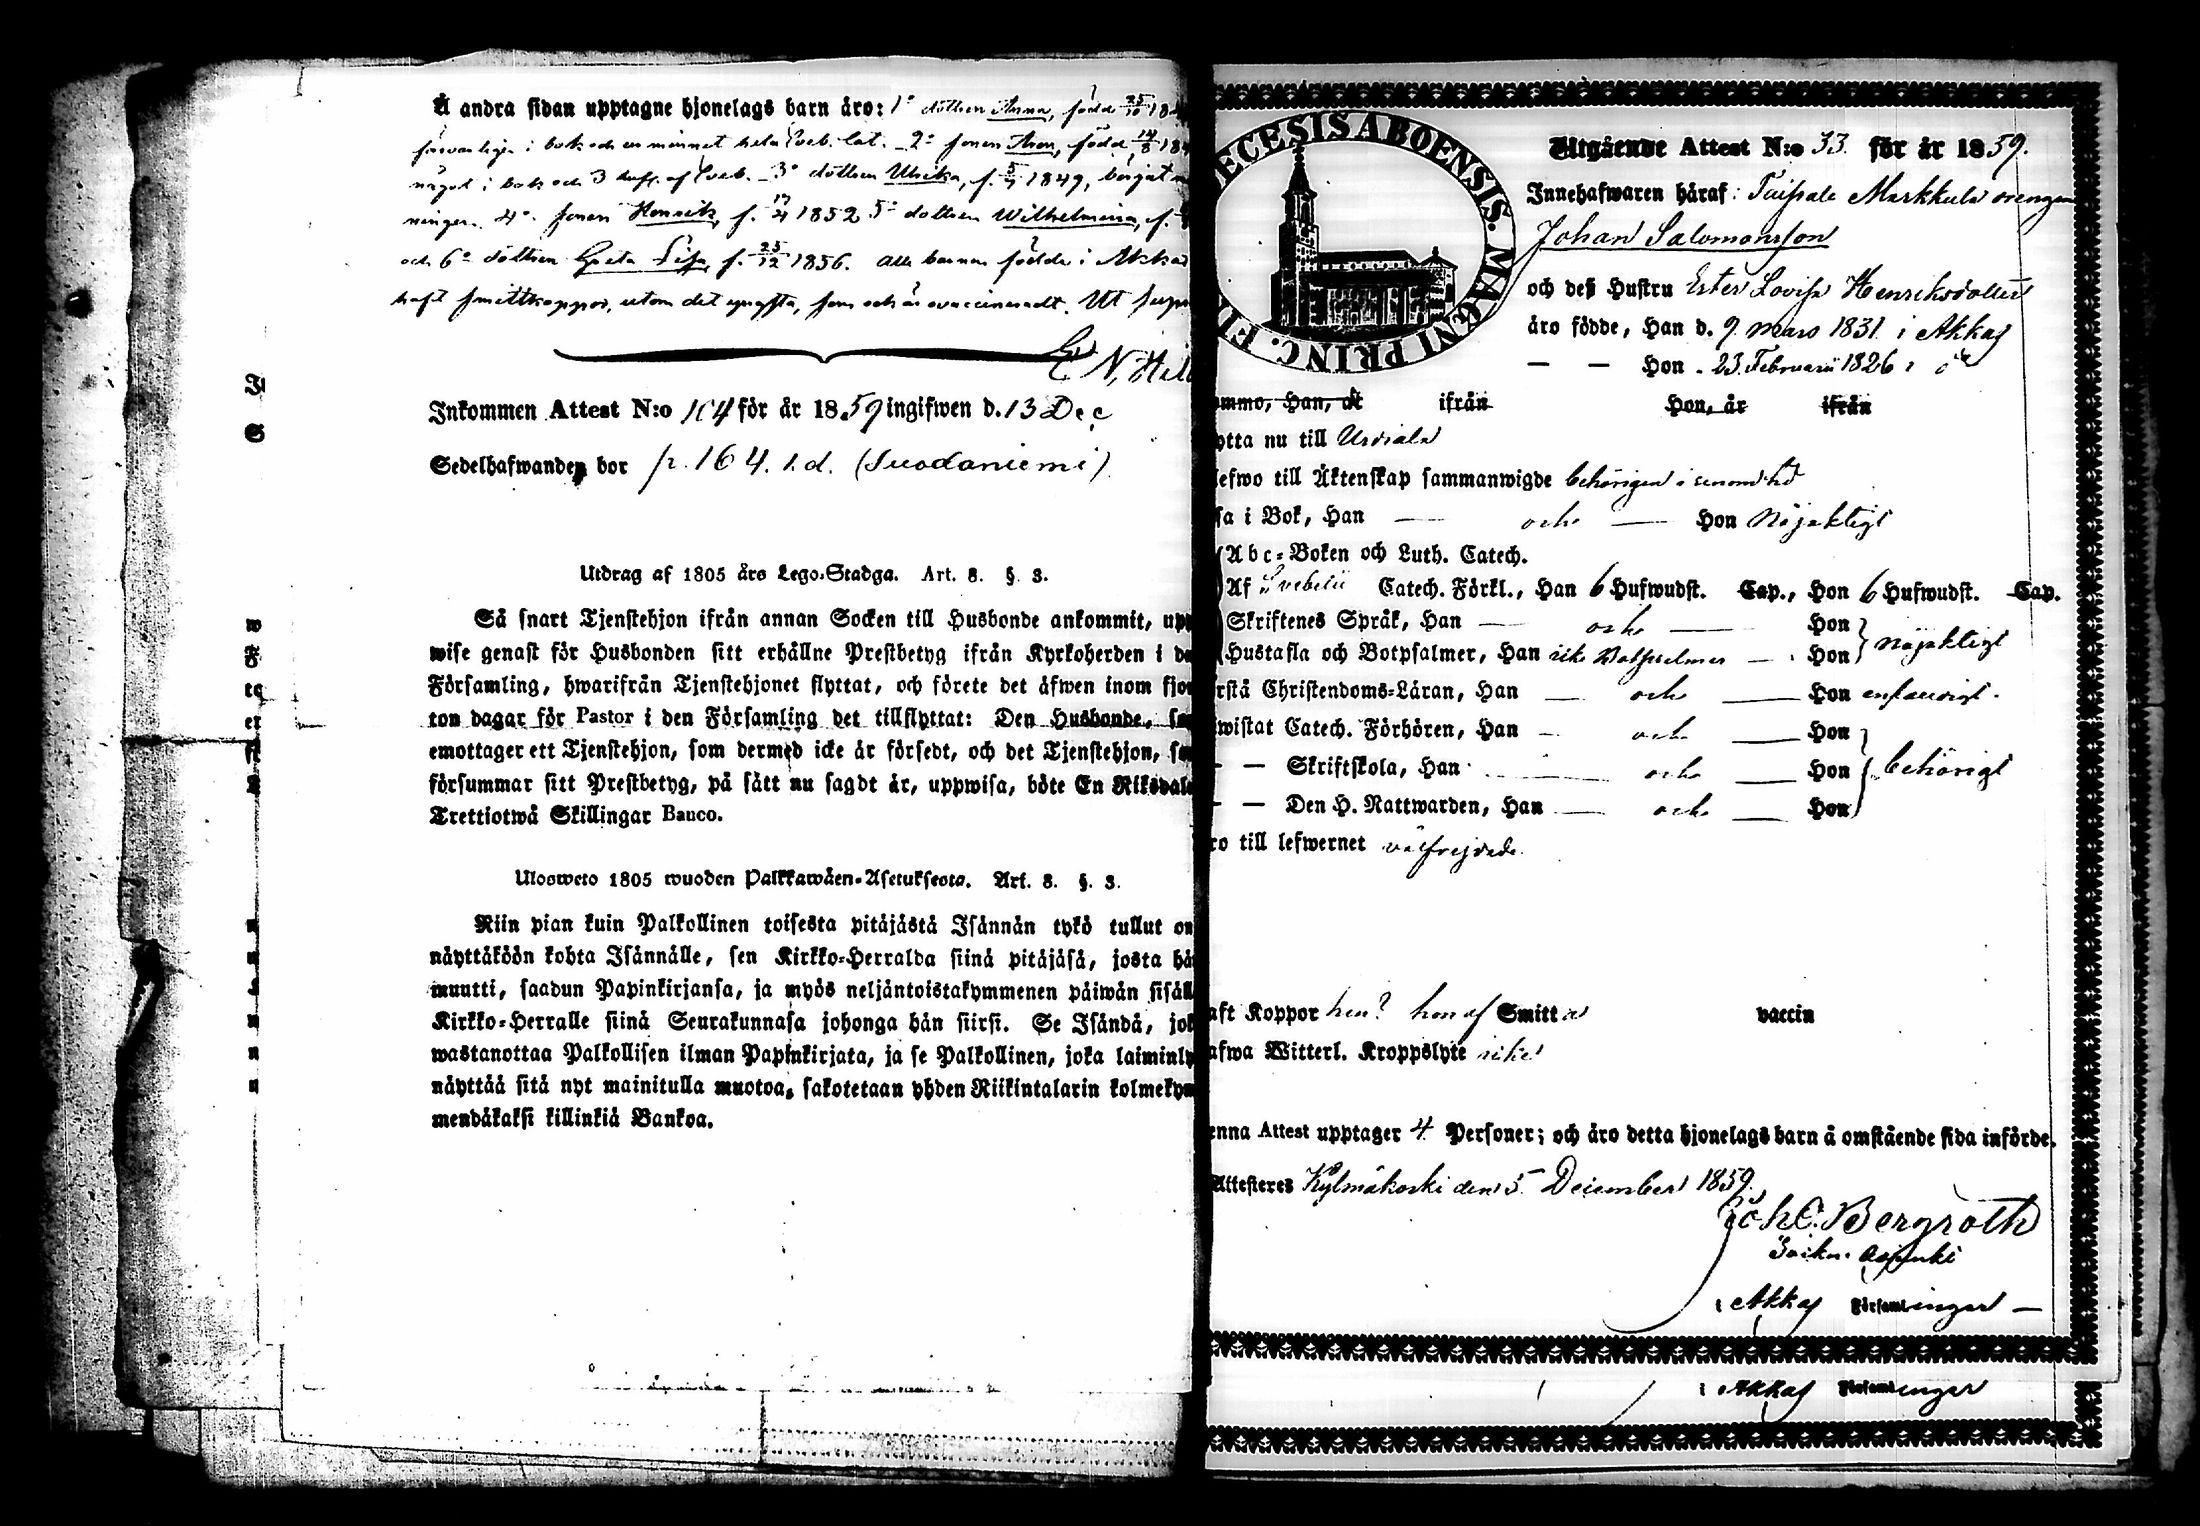 Å andra sidan upptagne hjonelags barn äro: 1º dottren Anna, född 25/10 18
försvarligen i bok och en minnet hela Sveb. lat. 2º sonen Aron, född 14/8 18
något i bok och 3 huf. af Sveb. 3º dottren Ulrika, f. 5/7 1849, börjat
ningen. 4º sonen Henrik, f. 17/4 1852 5º dottren Wilhelmina, f.
och 6º dottren Greta Lisa, f. 25/12 1856. alla barnen födde i Akkas
haft smittkoppor, utom det yngsta, som och är ovaccineradt. Ut supra
E N, Hel
Inkommen Attest N:o 104 för år 1859 ingifwen d. 13 Dec
Sedelhafwanden bor p. 164. l.d. (Suodaniemi)
Utdrag af 1805 års Lego-Stadga. Art. 8. §. 3.
Så snart Tjenstehjon ifrån annan Socken till Husbonde ankommit, upp
wise genast för Husbonden sitt erhållne Prestbetyg ifrån Kyrkoherden i de
Församling, hwarifrån Tjenstehjonet flyttat, och förete det äfwen inom fjor
ton dagar för Pastor i den Församling det tillflyttat: Den Husbonde, so
emottager ett Tjenstehjon, som dermed icke är försedt, och det Tjenstehjon, so
försummar sitt Prestbetyg, på sätt nu sagdt är, uppwisa, böte En Riksdale
Trettiotwå Skillingar Banco.
Ulosweto 1805 wuoden Palkkawäen-Asetuksesta. Art. 8. §. 3.
Niin pian kuin Palkollinen toisesta pitäjästä Isännän tykö tullut on
näyttäköön kohta Isännälle, sen Kirkko-Herralda siinä pitäjäsä, josta hä
muutti, saadun Papinkirjansa, ja myös neljäntoistakymmenen päiwän sisäll
Kirkko-Herralle siinä Seurakunnasa johonga hän siirsi. Se Isändä, jok
wastanottaa Palkollisen ilman Papinkirjata, ja se Palkollinen, joka laiminly
näyttää sitä nyt mainitulla muotoa, sakotetaan yhden Riikintalarin kolmekym
mendäkaksi killinkiä Bankoa.
ECESIS ABOENSIS. MAGNI PRINC. FI
Utgående Attest N:o 33. för år 1859.
Innehafwaren häraf: Taipale Markkula drengen
Johan Salomonsson
och deß Hustru Ester Lovisa Henriksdotter
äro födde, Han d. 9. mars 1831 i Akkas
— — Hon - 23. Februarii 1826 i
ommo, Han, åt ifrån Hon, år ifrån
ytta nu till Urdiala
lefwo till Äktenskap sammanwigde behörigen
sa i Bok, Han — och — Hon Nöjaktigt
Abc-Boken och Luth. Catech.
Af Svebelii Catech. Förkl., Han 6 Hufwudst. Cap., Hon 6 Hufwudst. Cap.
Skriftenes Språk, Han — och — Hon
Hustafla och Botpsalmer, Han icke Botpsalmer — Hon nöjaktigt
rstå Christendoms-Läran, Han — och — Hon enfaldigt.
wistat Catech. Förhören, Han — och — Hon
— — Skriftskola, Han — och — Hon behörigt
— — Den H. Nattwarden, Han — och — Hon
ro till lefwernet välfrejdade.
aft Koppor han? hon af Smitt a vaccin
afwa Witterl. Kroppslyte icke
enna Attest upptager 4 Personer; och äro detta hjonelags barn å omstående sida införde.
Attesteres Kylmäkoski den 5. December 1859.
Joh C. Bergroth
i Akkas Församlingar —
i Akkas Församlingar